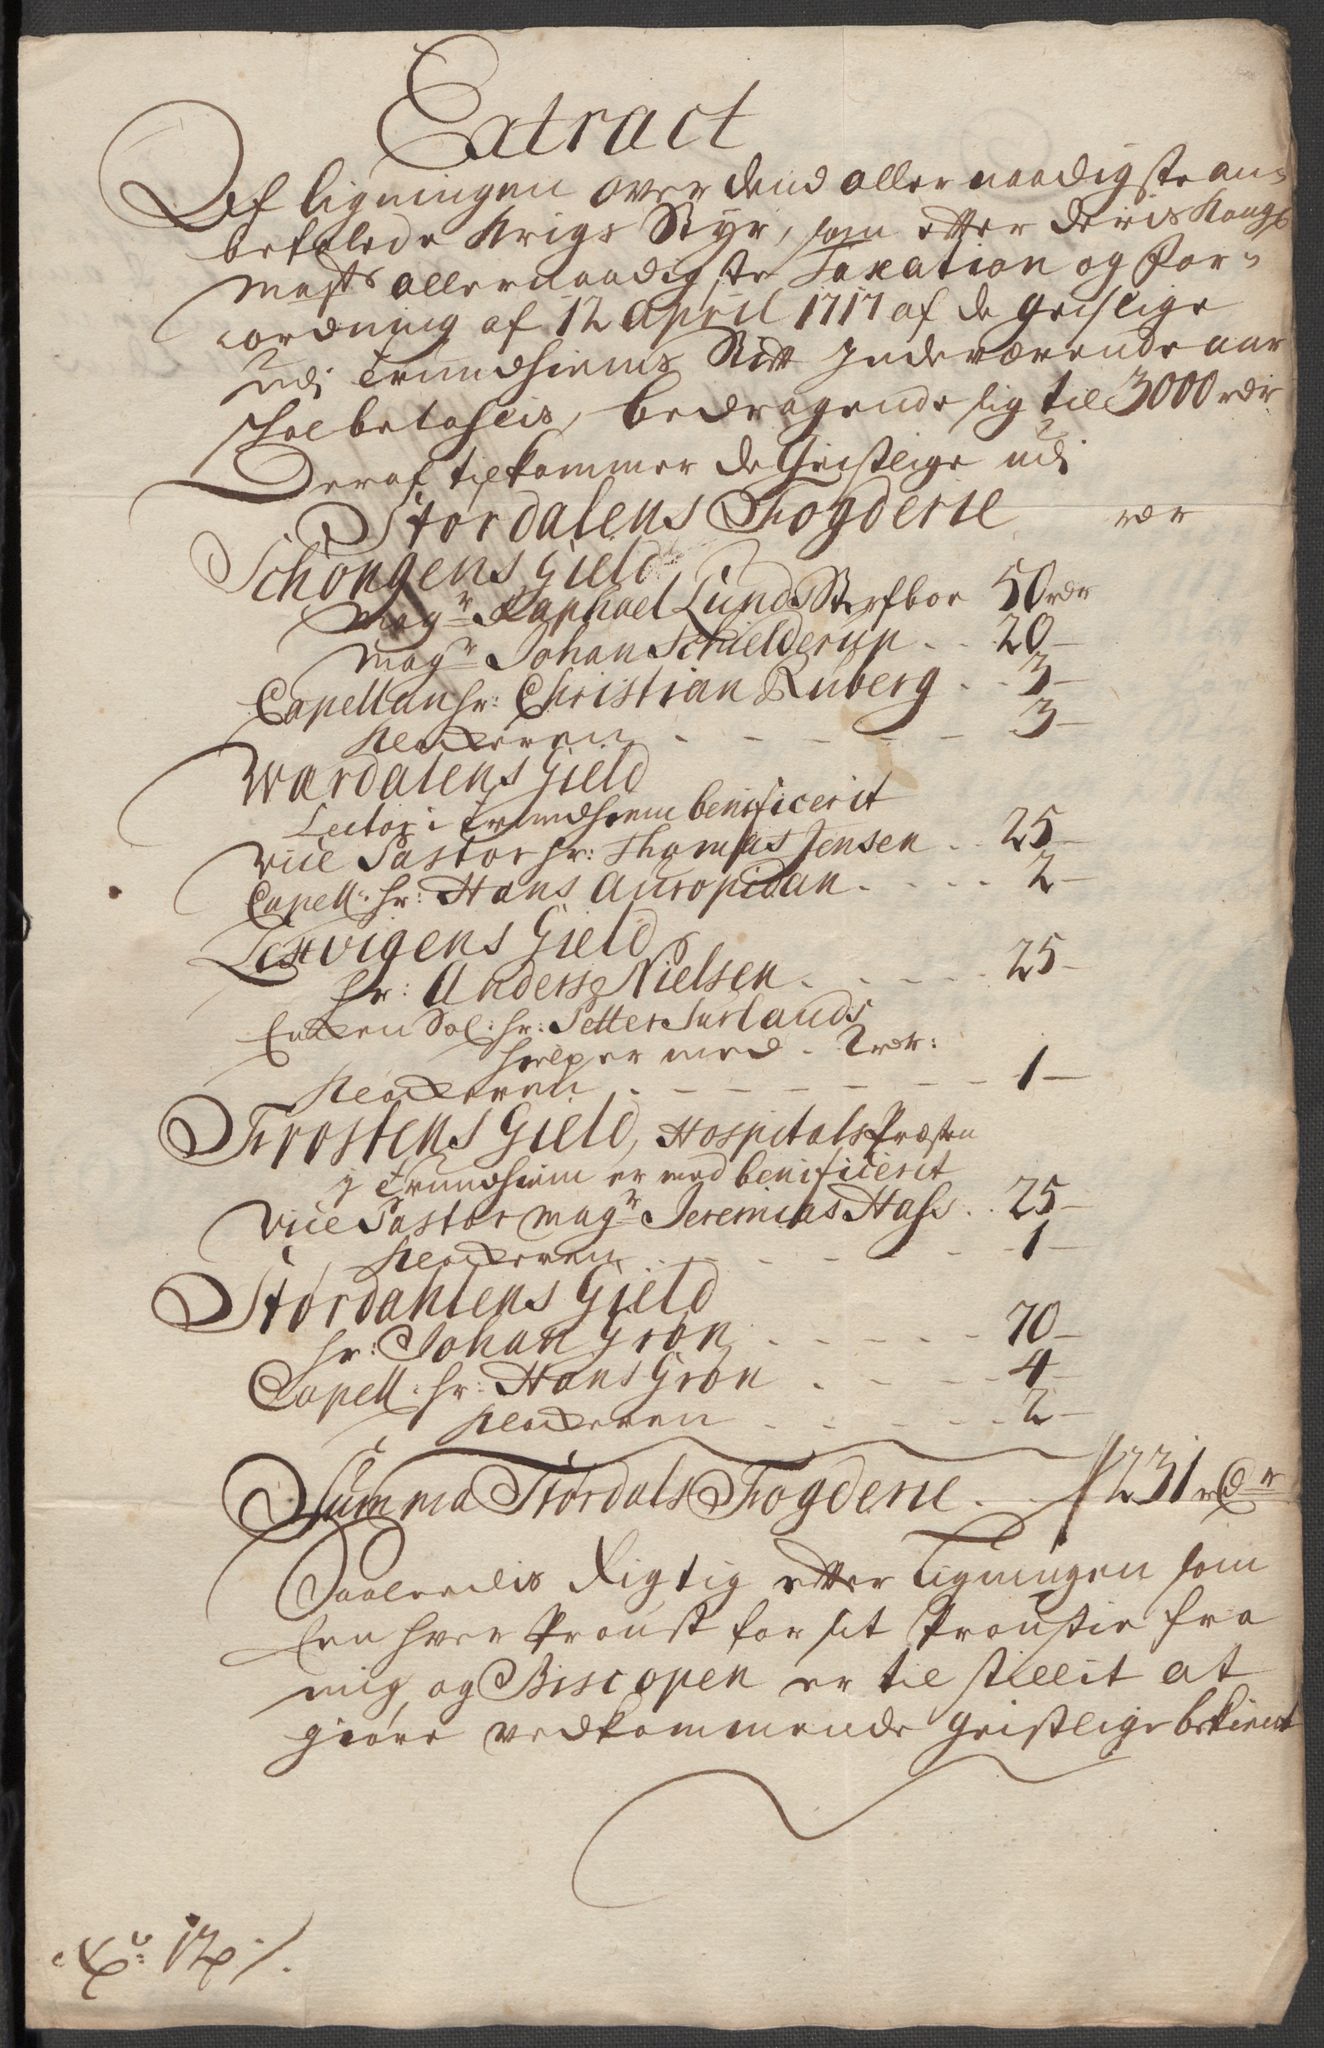 Extract
Af ligningen over dend allernaadigste an-
befalede Krigs Styr, som efter Deris Kongl
Mayts allernaadigste Taxation og For-
ordning af 12 April 1717 af de geistlige
udi Trundhiems Stift Indeværende aar
skal betahlis, bedragende sig til 3000 rdr
Deraf tilkommer de Geistlige udi
Størdalens Fogderie rdr
Schöngens Gield
Magr Raphael Lunds Sterfboe 50 rdr
Magr Johan Schielderup . . 20 -
Capellan hr: Christian Ruberg . . 3 -
Klockeren - - - - - 3 -
Værdalens Gield
Lector i Trundhiem benificerit
Vice Pastor hr: Thomas Jensen . . 25 -
Capell: hr: Hans Auropidan . . . . 2 -
Lexvigens Gield
hr: Anders Nielsen . . . . . 25 -
Encken Sal: hr: Petter Jurlands
hielper med - 2 rdr:
Klockeren - - - - - - 1 -
Frostens Gield, Hospitals Præsten
i Trundhiem er med benificerit
Vice Pastor Magr Jeremias Hass . . 25 -
Klockeren . . - - - - - 1 -
Størdahlens Gield
hr: Johan Grön . - - - - - 70 -
Capell: hr: Hans Grön . - - - - 4 -
Klockeren . - - - - 2 -
Summa Størdals Fogderie . . . 231 rdr
Saaledis Rigtig efter Ligningen som
Een hver Proust for sit Proustie fra
mig og Biscopen er tilstillit at
giøre vedkommende Geistlige bekient
No 12 /.